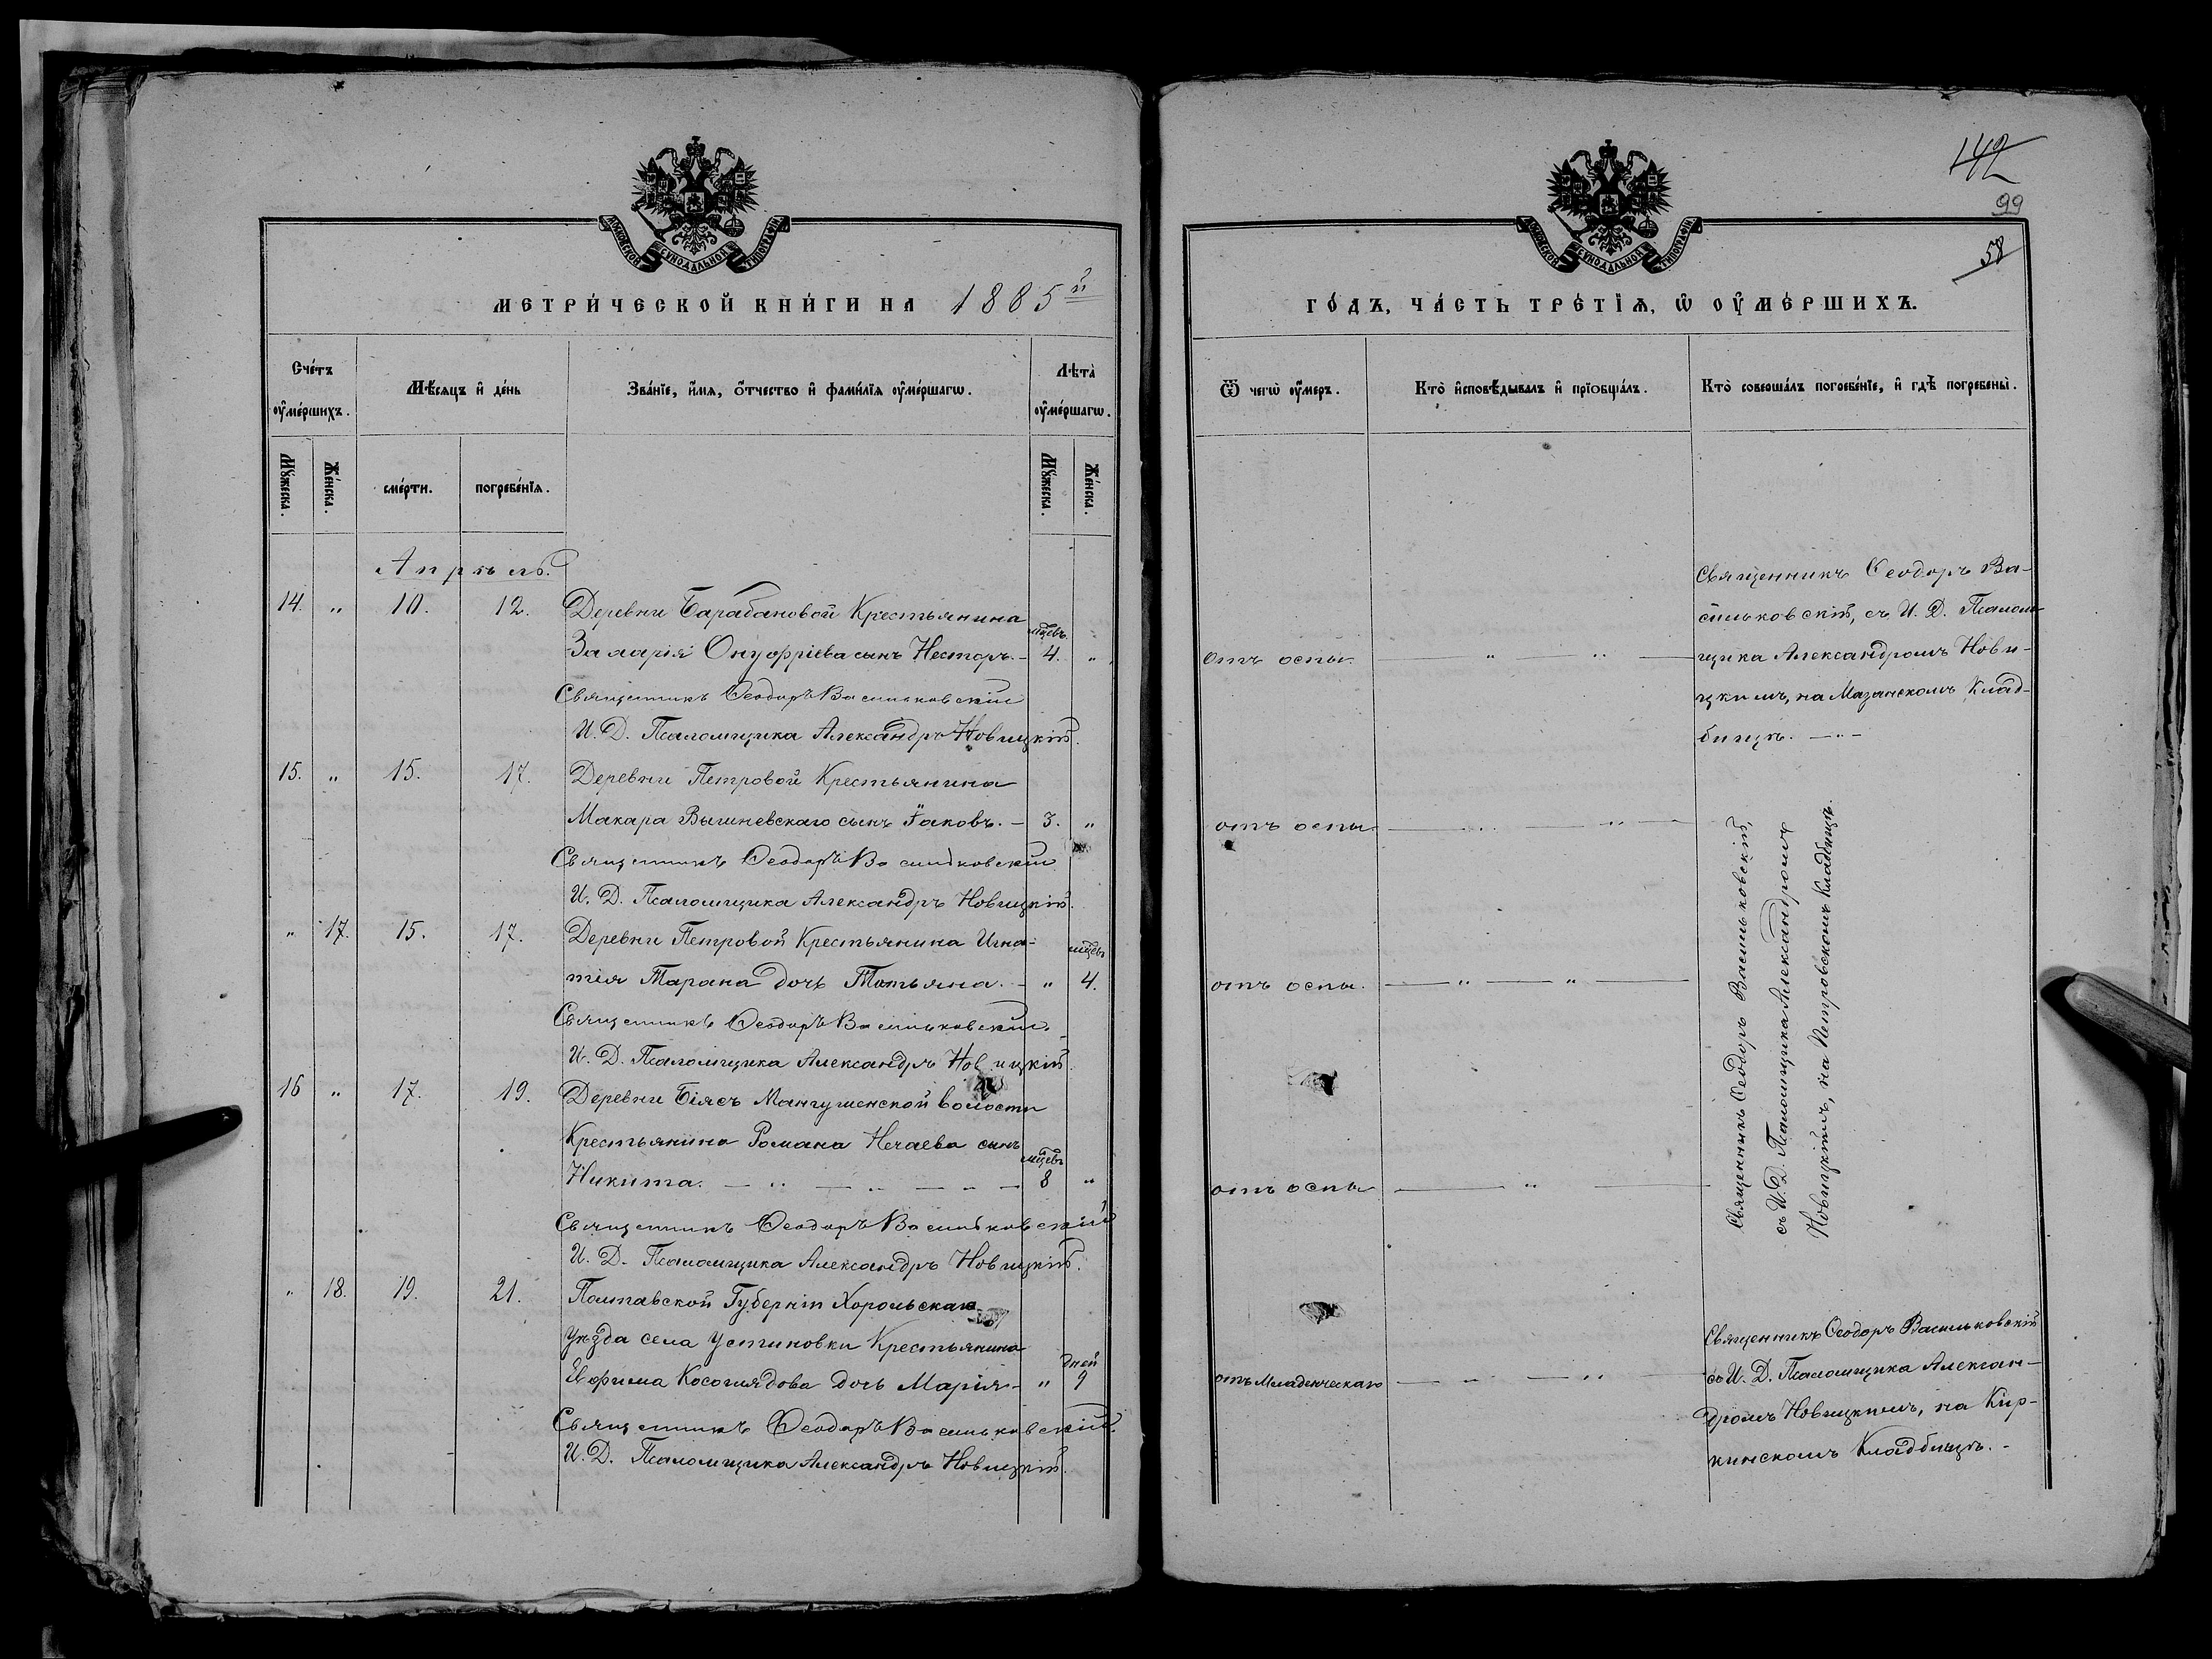 МОСКОВСКОЙ СѴНОДАЛЬНОЙ ТИПОГРАФІИ
МЕТРИ́ЧЕСКОЙ КНИ́ГИ НА 1885й
Сче́тъ ᲂу҆ме́ршихъ.
Мѣ́сяцъ и҆ де́нь
Зва́нїе, и҆́мя, ѻ҆́тчество и҆ фами́лїя ᲂу҆ме́ршагѡ.
Лѣ́та ᲂу҆ме́ршагѡ.
Мꙋ́жеска.
Же́нска.
сме́рти.
погребе́нїя.
Мꙋ́жеска.
Же́нска.
Апрѣль.
14. " 10. 12. Деревни Барабановой Крестьянина
мѣсцевъ
Захарія Онуфріева сынъ Несторъ. – 4. "
Священникъ Ѳеодоръ Васильковскій
И. Д. Псаломщика Александръ Новицкій.
15. " 15. 17. Деревни Петровой Крестьянина
Макара Вышневскаго сынъ Іаковъ. – 3. "
Священникъ Ѳеодоръ Васильковскій
И. Д. Псаломщика Александръ Новицкій.
" 17. 15. 17. Деревни Петровой Крестьянина Игна-
мѣсцевъ
тія Тарана дочь Татьяна. – " 4.
Священникъ Ѳеодоръ Васильковскій
И. Д. Псаломщика Александръ Новицкій.
16 " 17. 19. Деревни Біясъ Мангушенской волости
Крестьянина Романа Нечаева сынъ
мѣсцевъ
Никита. – " – " – " – 8 "
Священникъ Ѳеодоръ Васильковскій
И. Д. Псаломщика Александръ Новицкій.
" 18. 19. 21. Полтавской Губерніи Хорольскаго
уѣзда села Устиновки Крестьянина
дней
Евфима Косоглядова дочь Марія – " 9
Священникъ Ѳеодоръ Васильковскій.
И. Д. Псаломщика Александръ Новицкій.
142
99
58
МОСКОВСКОЙ СѴНОДАЛЬНОЙ ТИПОГРАФІИ
ГО́ДЪ, ЧА́СТЬ ТРЕ́ТІѦ, Ѡ҆ ОУ҆МЕ́РШИХЪ.
Ѿ чегѡ̀ ᲂу҆́меръ.
Кто̀ и҆сповѣ́дывалъ и҆ прїобща́лъ.
Кто̀ соверша́лъ погребе́нїе, и҆ гдѣ̀ погребены̀.
отъ оспы. – " – " –
Священникъ Ѳеодоръ Ва-
сильковскій, съ И. Д. Псалом-
щика Александромъ Нови-
цкимъ, на Мазанскомъ Клад-
бищѣ. – " –
отъ оспы. – " – " –
отъ оспы. – " – " –
отъ оспы – " –
Священникъ Ѳеодоръ Васильковскій,
съ И. Д. Псаломщика Александромъ
Новицкимъ, на Петровскомъ Кладбищѣ.
отъ Младенческаго – " – " –
Священникъ Ѳеодоръ Васильковскій
съ И. Д. Псаломщика Алексан-
дромъ Новицкимъ, на Кир-
кинскомъ Кладбищѣ. –